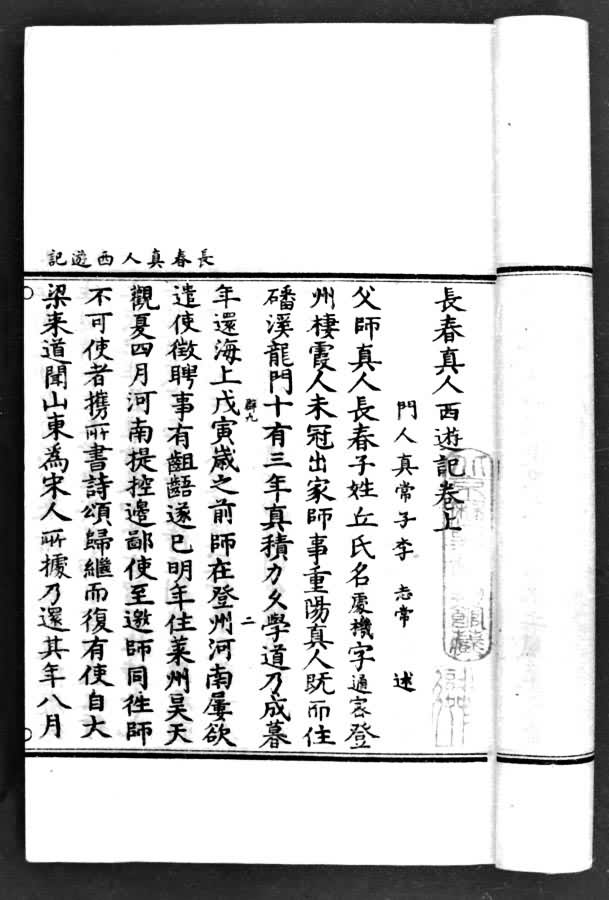 長春真人西遊記
長春真人西遊記卷上
門人真常子李志常述
父師真人長春子姓丘氏名處機字通密登
州棲霞人未冠出家師事重陽真人既而住
磻溪龍門十有三年真積力久學道乃成暮
群九
二
年還海上戊寅歲之前師在登州河南屢欲
遣使徵聘事有齟齬遂已明年住萊州昊天
觀夏四月河南提控邊鄙使至邀師同往師
不可使者攜所書詩頌歸繼而復有使自大
梁來道聞山東為宋人所據乃還其年八月